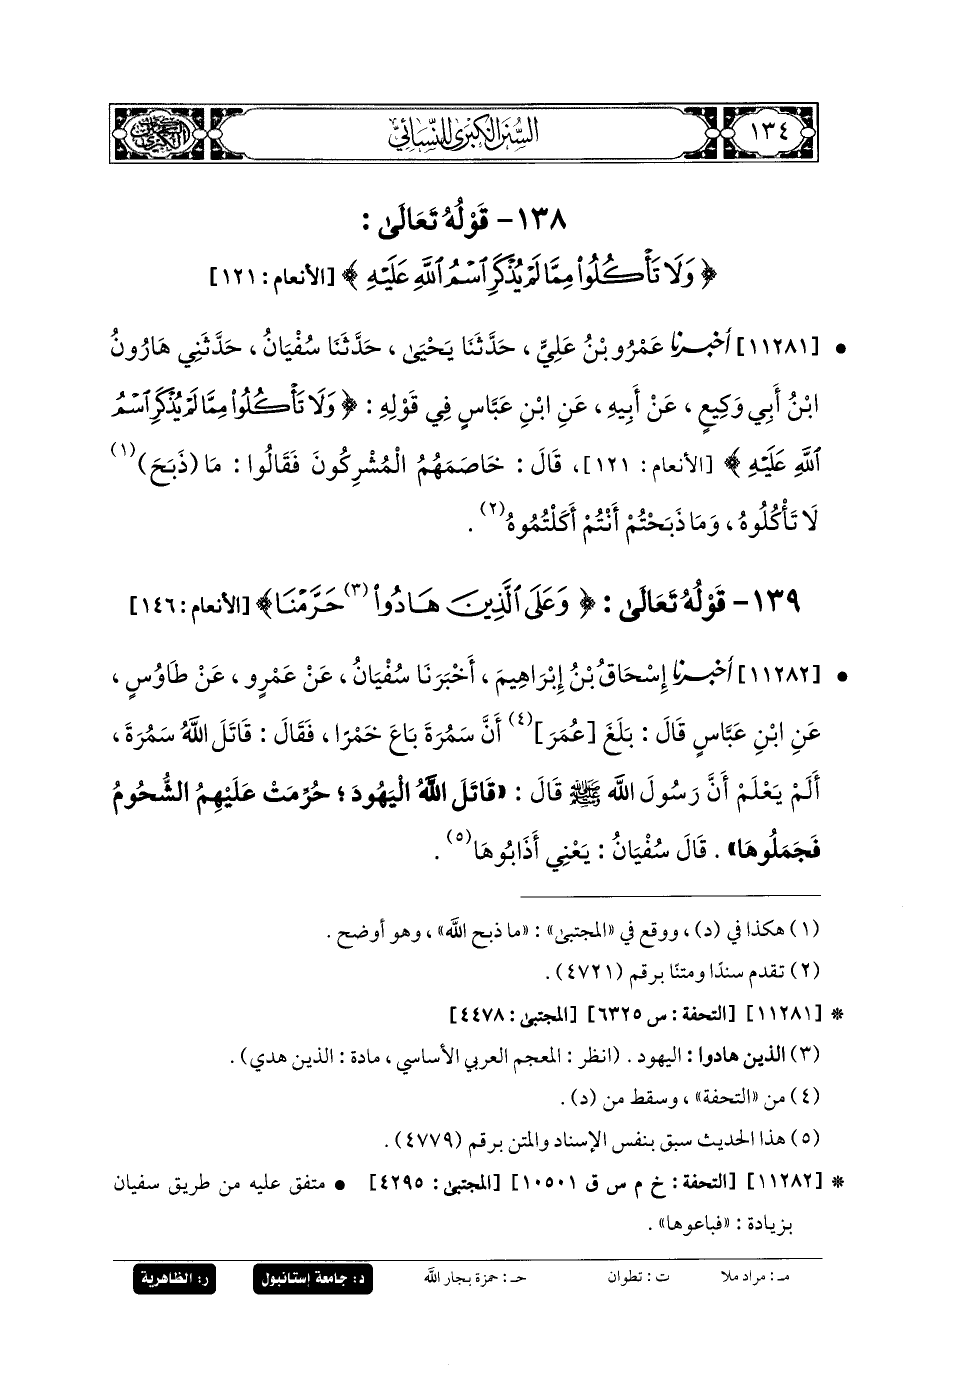 ١٣٤
السُّنَنُ الكِبْرَىٰ لِلنَّسَائِيِّ
١٣٨- قَوْلُهُ تَعَالَىٰ :
﴿ وَلَا تَأْكُلُوا۟ مِمَّا لَمْ يُذْكَرِ ٱسْمُ ٱللَّهِ عَلَيْهِ ﴾ [الأنعام : ١٢١]
• [١١٢٨١] أخبرنا عَمْرُو بْنُ عَلِيٍّ ، حَدَّثَنَا يَحْيَىٰ ، حَدَّثَنَا سُفْيَانُ ، حَدَّثَنِي هَارُونُ
ابْنُ أَبِي وَكِيعٍ ، عَنْ أَبِيهِ ، عَنِ ابْنِ عَبَّاسٍ فِي قَوْلِهِ : ﴿ وَلَا تَأْكُلُوا۟ مِمَّا لَمْ يُذْكَرِ ٱسْمُ
ٱللَّهِ عَلَيْهِ ﴾ [الأنعام : ١٢١]، قَالَ : خَاصَمَهُمُ الْمُشْرِكُونَ فَقَالُوا : مَا (ذَبَحَ)(١)
لَا تَأْكُلُوهُ ، وَمَا ذَبَحْتُمْ أَنْتُمْ أَكَلْتُمُوهُ(٢) .
١٣٩- قَوْلُهُ تَعَالَىٰ : ﴿ وَعَلَى ٱلَّذِينَ هَادُوا۟(٣) حَرَّمْنَا ﴾ [الأنعام : ١٤٦]
• [١١٢٨٢] أخبرنا إِسْحَاقُ بْنُ إِبْرَاهِيمَ ، أَخْبَرَنَا سُفْيَانُ ، عَنْ عَمْرٍو ، عَنْ طَاوُسٍ ،
عَنِ ابْنِ عَبَّاسٍ قَالَ : بَلَغَ [عُمَرَ](٤) أَنَّ سَمُرَةَ بَاعَ خَمْرًا ، فَقَالَ : قَاتَلَ اللَّهُ سَمُرَةَ ،
أَلَمْ يَعْلَمْ أَنَّ رَسُولَ اللَّهِ ﷺ قَالَ : «قَاتَلَ اللَّهُ الْيَهُودَ ؛ حُرِّمَتْ عَلَيْهِمُ الشُّحُومُ
فَجَمَلُوهَا» . قَالَ سُفْيَانُ : يَعْنِي أَذَابُوهَا(٥) .
(١) هكذا في (د) ، ووقع في «المجتبىٰ» : «ما ذبح اللَّه» ، وهو أوضح .
(٢) تقدم سندًا ومتنًا برقم (٤٧٢١) .
* [١١٢٨١] [التحفة : س ٦٣٢٥] [المجتبىٰ : ٤٤٧٨]
(٣) الذين هادوا : اليهود . (انظر : المعجم العربي الأساسي ، مادة : الذين هدي) .
(٤) من «التحفة» ، وسقط من (د) .
(٥) هذا الحديث سبق بنفس الإسناد والمتن برقم (٤٧٧٩) .
* [١١٢٨٢] [التحفة : خ م س ق ١٠٥٠١] [المجتبىٰ : ٤٢٩٥] • متفق عليه من طريق سفيان
بزيادة : «فباعوها» .
مـ : مراد ملا ت : تطوان حـ : حمزة بجار اللَّه د: جامعة إستانبول ر: الظاهرية